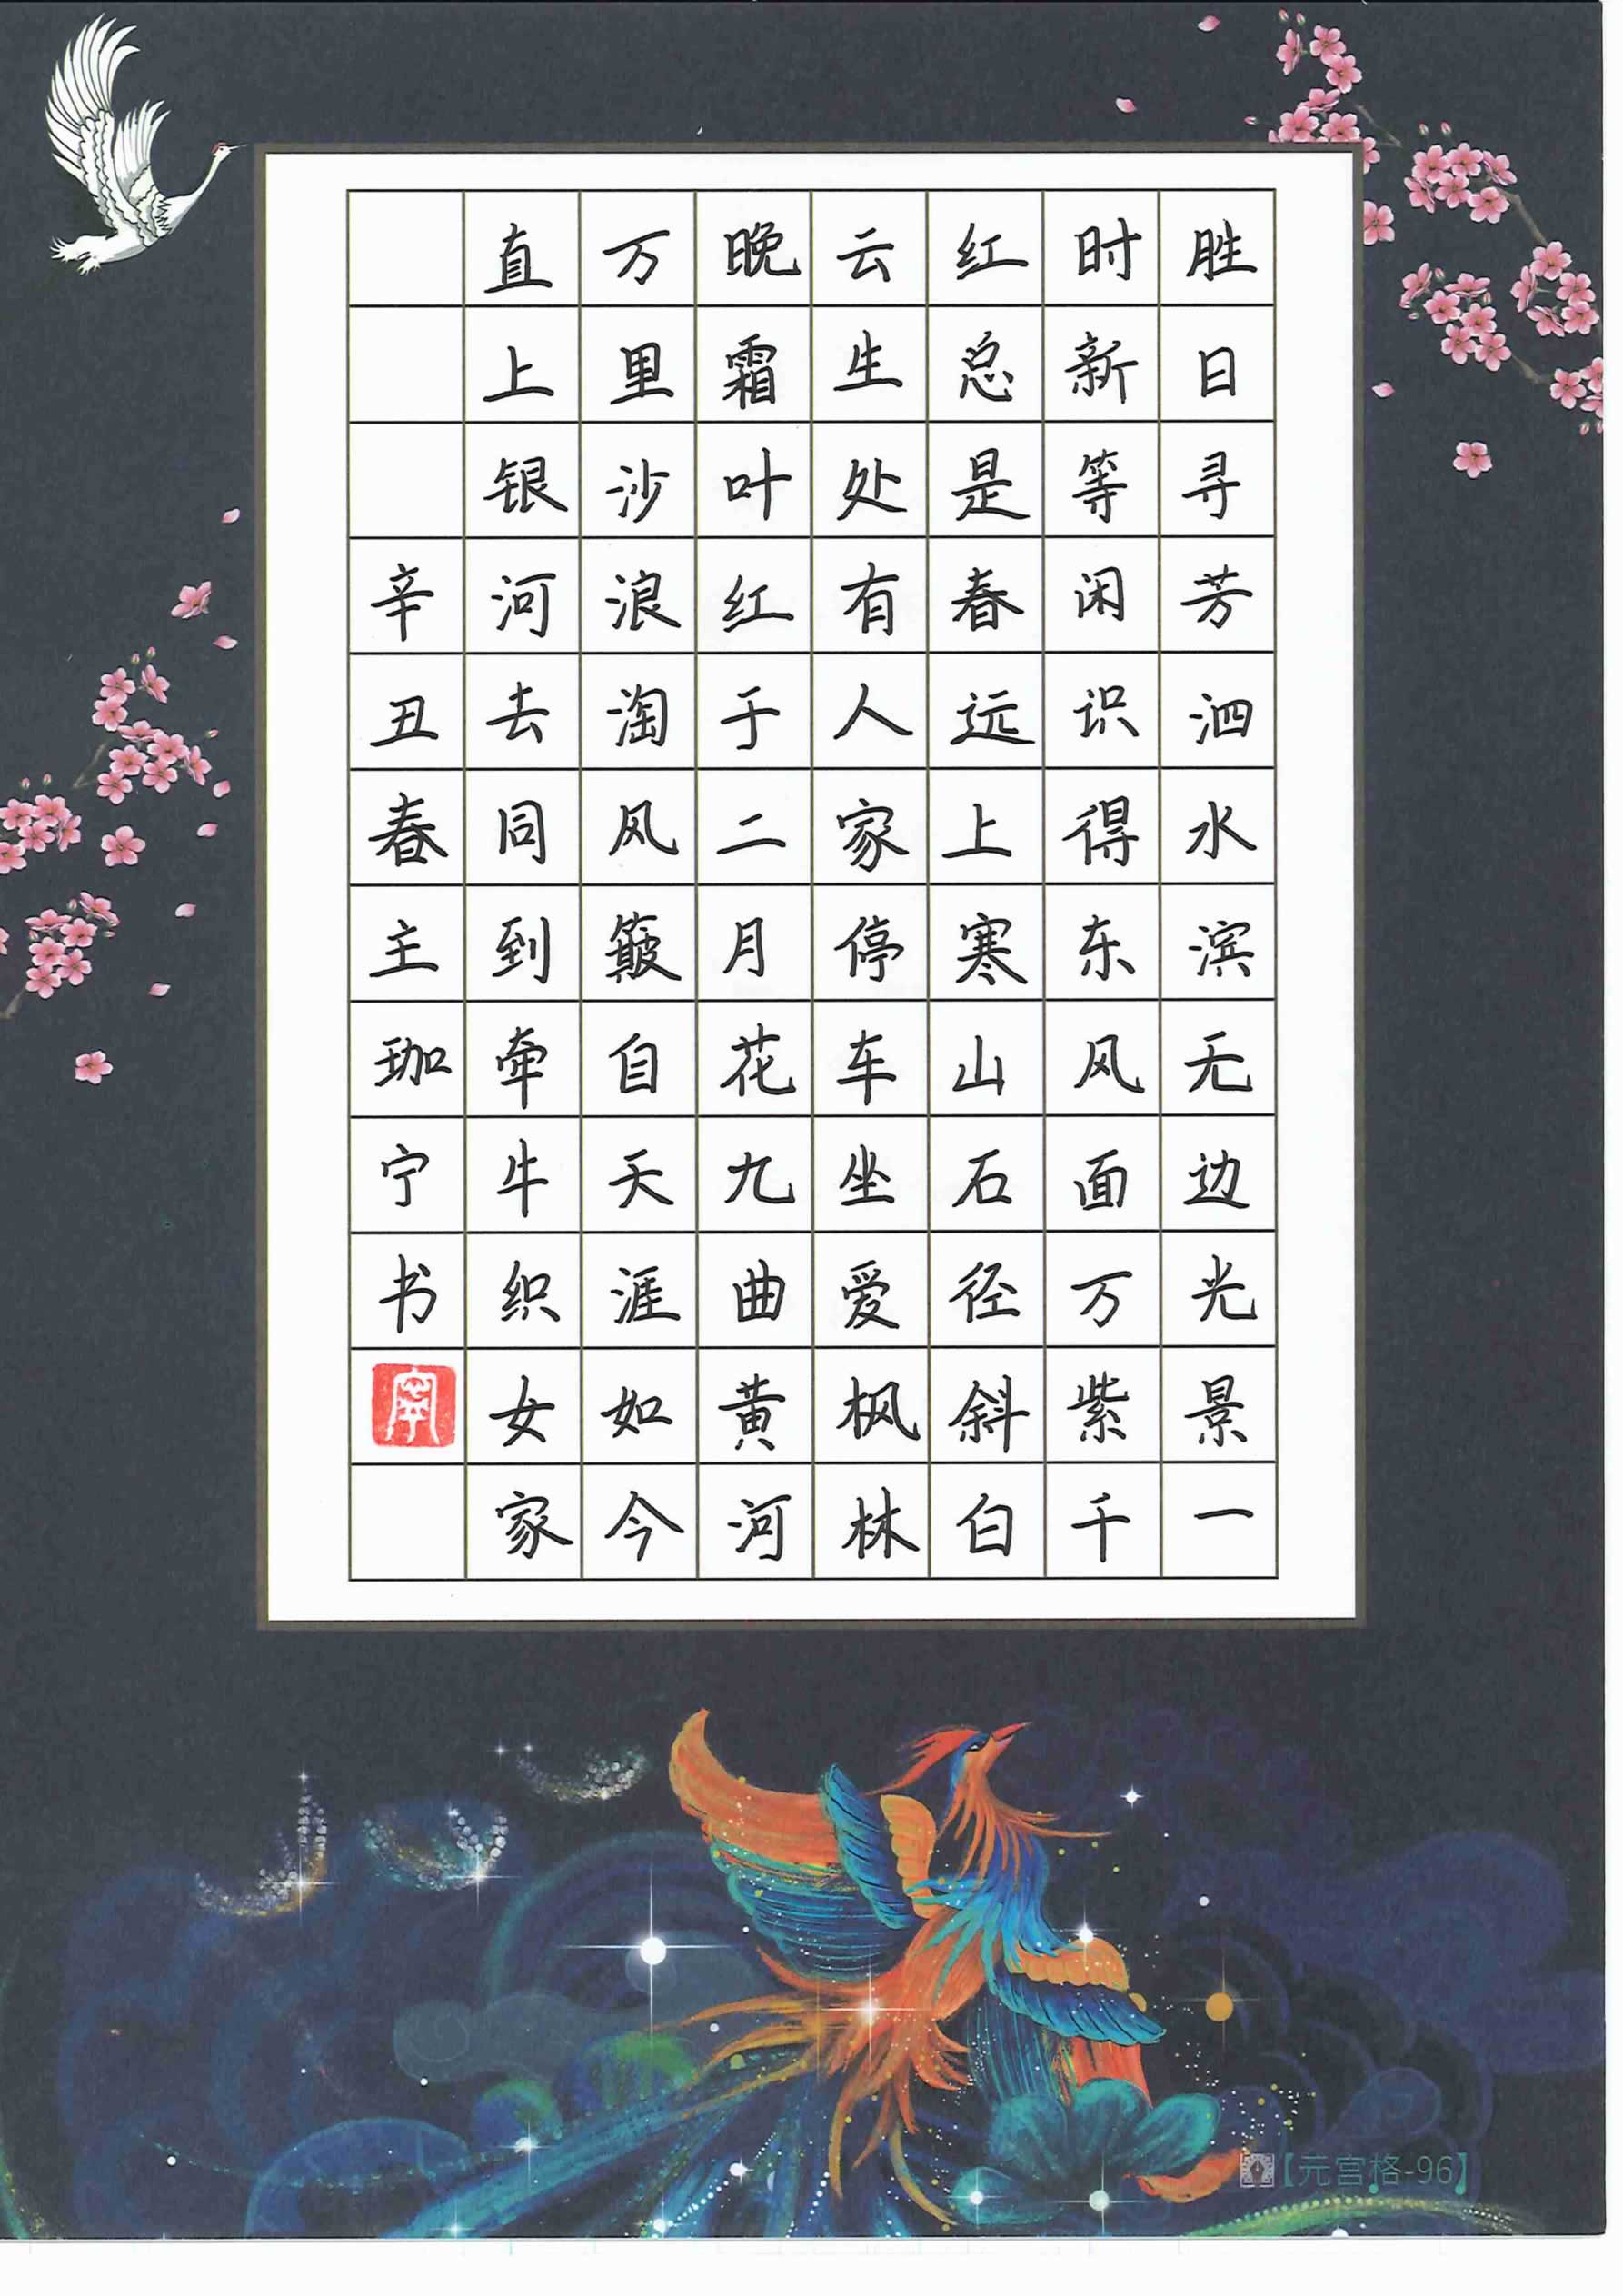 胜日寻芳泗水滨无边光景一
时新等闲识得东风面万紫千
红总是春远上寒山石径斜白
云生处有人家停车坐爱枫林
晚霜叶红于二月花九曲黄河
万里沙浪淘风簸自天涯如今
直上银河去同到牵牛织女家
辛丑春主珈宁书
【元宫格-96】